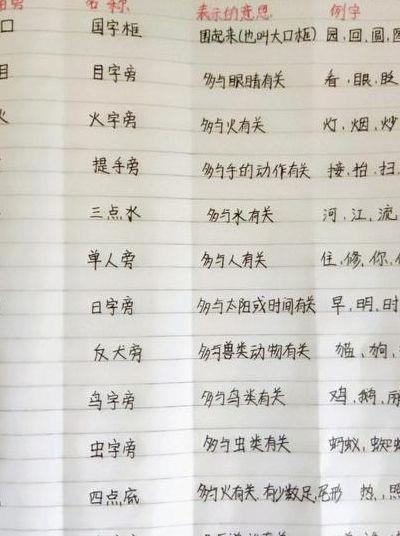 名称 表示的意思 例字
口 国字框 围起来(也叫大口框) 园,回,圆
目 目字旁 多与眼睛有关 看,眼,眨
火 火字旁 多与火有关 灯,烟,炒
提手旁 多与手的动作有关 接,拍,扫
三点水 多与水有关 河,江,流
单人旁 多与人有关 住,修,你
日字旁 多与太阳或时间有关 早,明,时
反犬旁 多与兽类动物有关 猫,狗
鸟字旁 多与鸟类有关 鸡,鹅
虫字旁 多与虫类有关 蚂蚁,蜘
四点底 多与火有关,有少数足,尾形 热,照